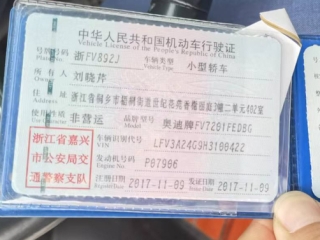 中华人民共和国机动车行驶证
Vehicle License of the People's Republic of China
号牌号码 浙FV892J 车辆类型 小型轿车
Plate No. Vehicle Type
所有人 刘晓芹
Owner
住址 浙江省桐乡市梧桐街道世纪苑苑 2幢二单元402室
Address
使用性质 非营运 品牌型号 奥迪牌FV7201FEDBG
Use Character Model
浙江省嘉兴
市公安局交
通警察支队
车辆识别代号 LFV3A24G9H3100422
VIN
发动机号码 P07906
Engine No.
注册日期 2017-11-09 发证日期 2017-11-09
Register Date Issue Date